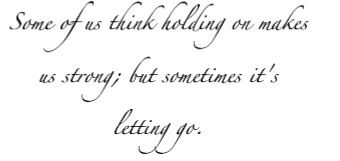 Some of us think holding on makes
us strong; but sometimes it's
letting go.